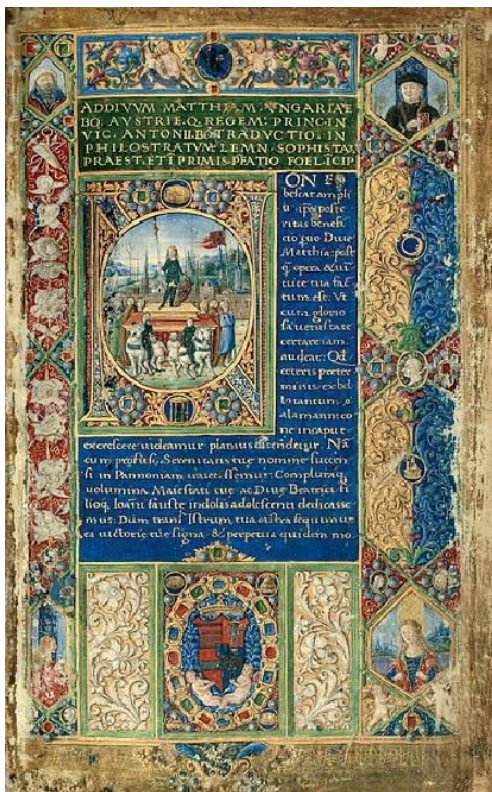 AD DIVVM MATTHIAM VNGARIAE
BOQ AVSTRIE Q REGEM PRINCIN
VIC ANTONII B TRADVCTIO IN
PHILOSTRATVM LEMN SOPHISTA
PRAEST ET I PRIMIS PFATIO FOELICIP
NON E
bescat ampli
us
vitas benefi
cio tuo Dive
Matthia post
q opera
tute tua fac
tum est Vt
cum glorio
sa vetustate
certare iam
audeat Qd
ceteris preter
missis ex bel
lo tantum
alamannico
ne in caput
excrescere videamur planius Nã
cum Serenitatis tue nomine succen
si in Pannoniam Compluraq
volumina Maiestati tue ac Dive Beatrici fi
lioq Ioani fauste indolis adolescenti dedicasse
mus Dum trans Istrum tua castra sequimur
ea victorie tue signa & perpetua quidem mo